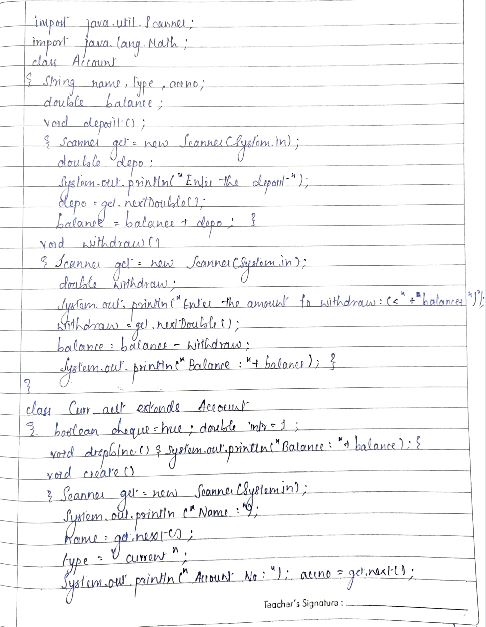 import java.util.Scanner;
import java.lang.Math;
class Account
{ String name, type, accno;
double balance;
void deposit();
{ Scanner get = new Scanner(System.in);
double depo;
System.out.println("Enter the deposit");
depo = get.nextDouble();
balance = balance + depo; }
void withdraw()
{ Scanner get = new Scanner(System.in);
double withdraw;
System.out.println("Enter the amount to withdraw: (<" + "balance+")");
withdraw = get.nextDouble();
balance = balance - withdraw;
System.out.println("Balance : "+ balance); }
}
class Curr_acct extends Account
{ boolean cheque=true; double = 1;
void () { System.out.println("Balance: "+ balance); }
void create()
{ Scanner get = new Scanner(System.in);
System.out.println("Name : ");
Name = get.next();
type = "current";
System.out.println("Account No : "); accno = get.next();
Teacher's Signature :